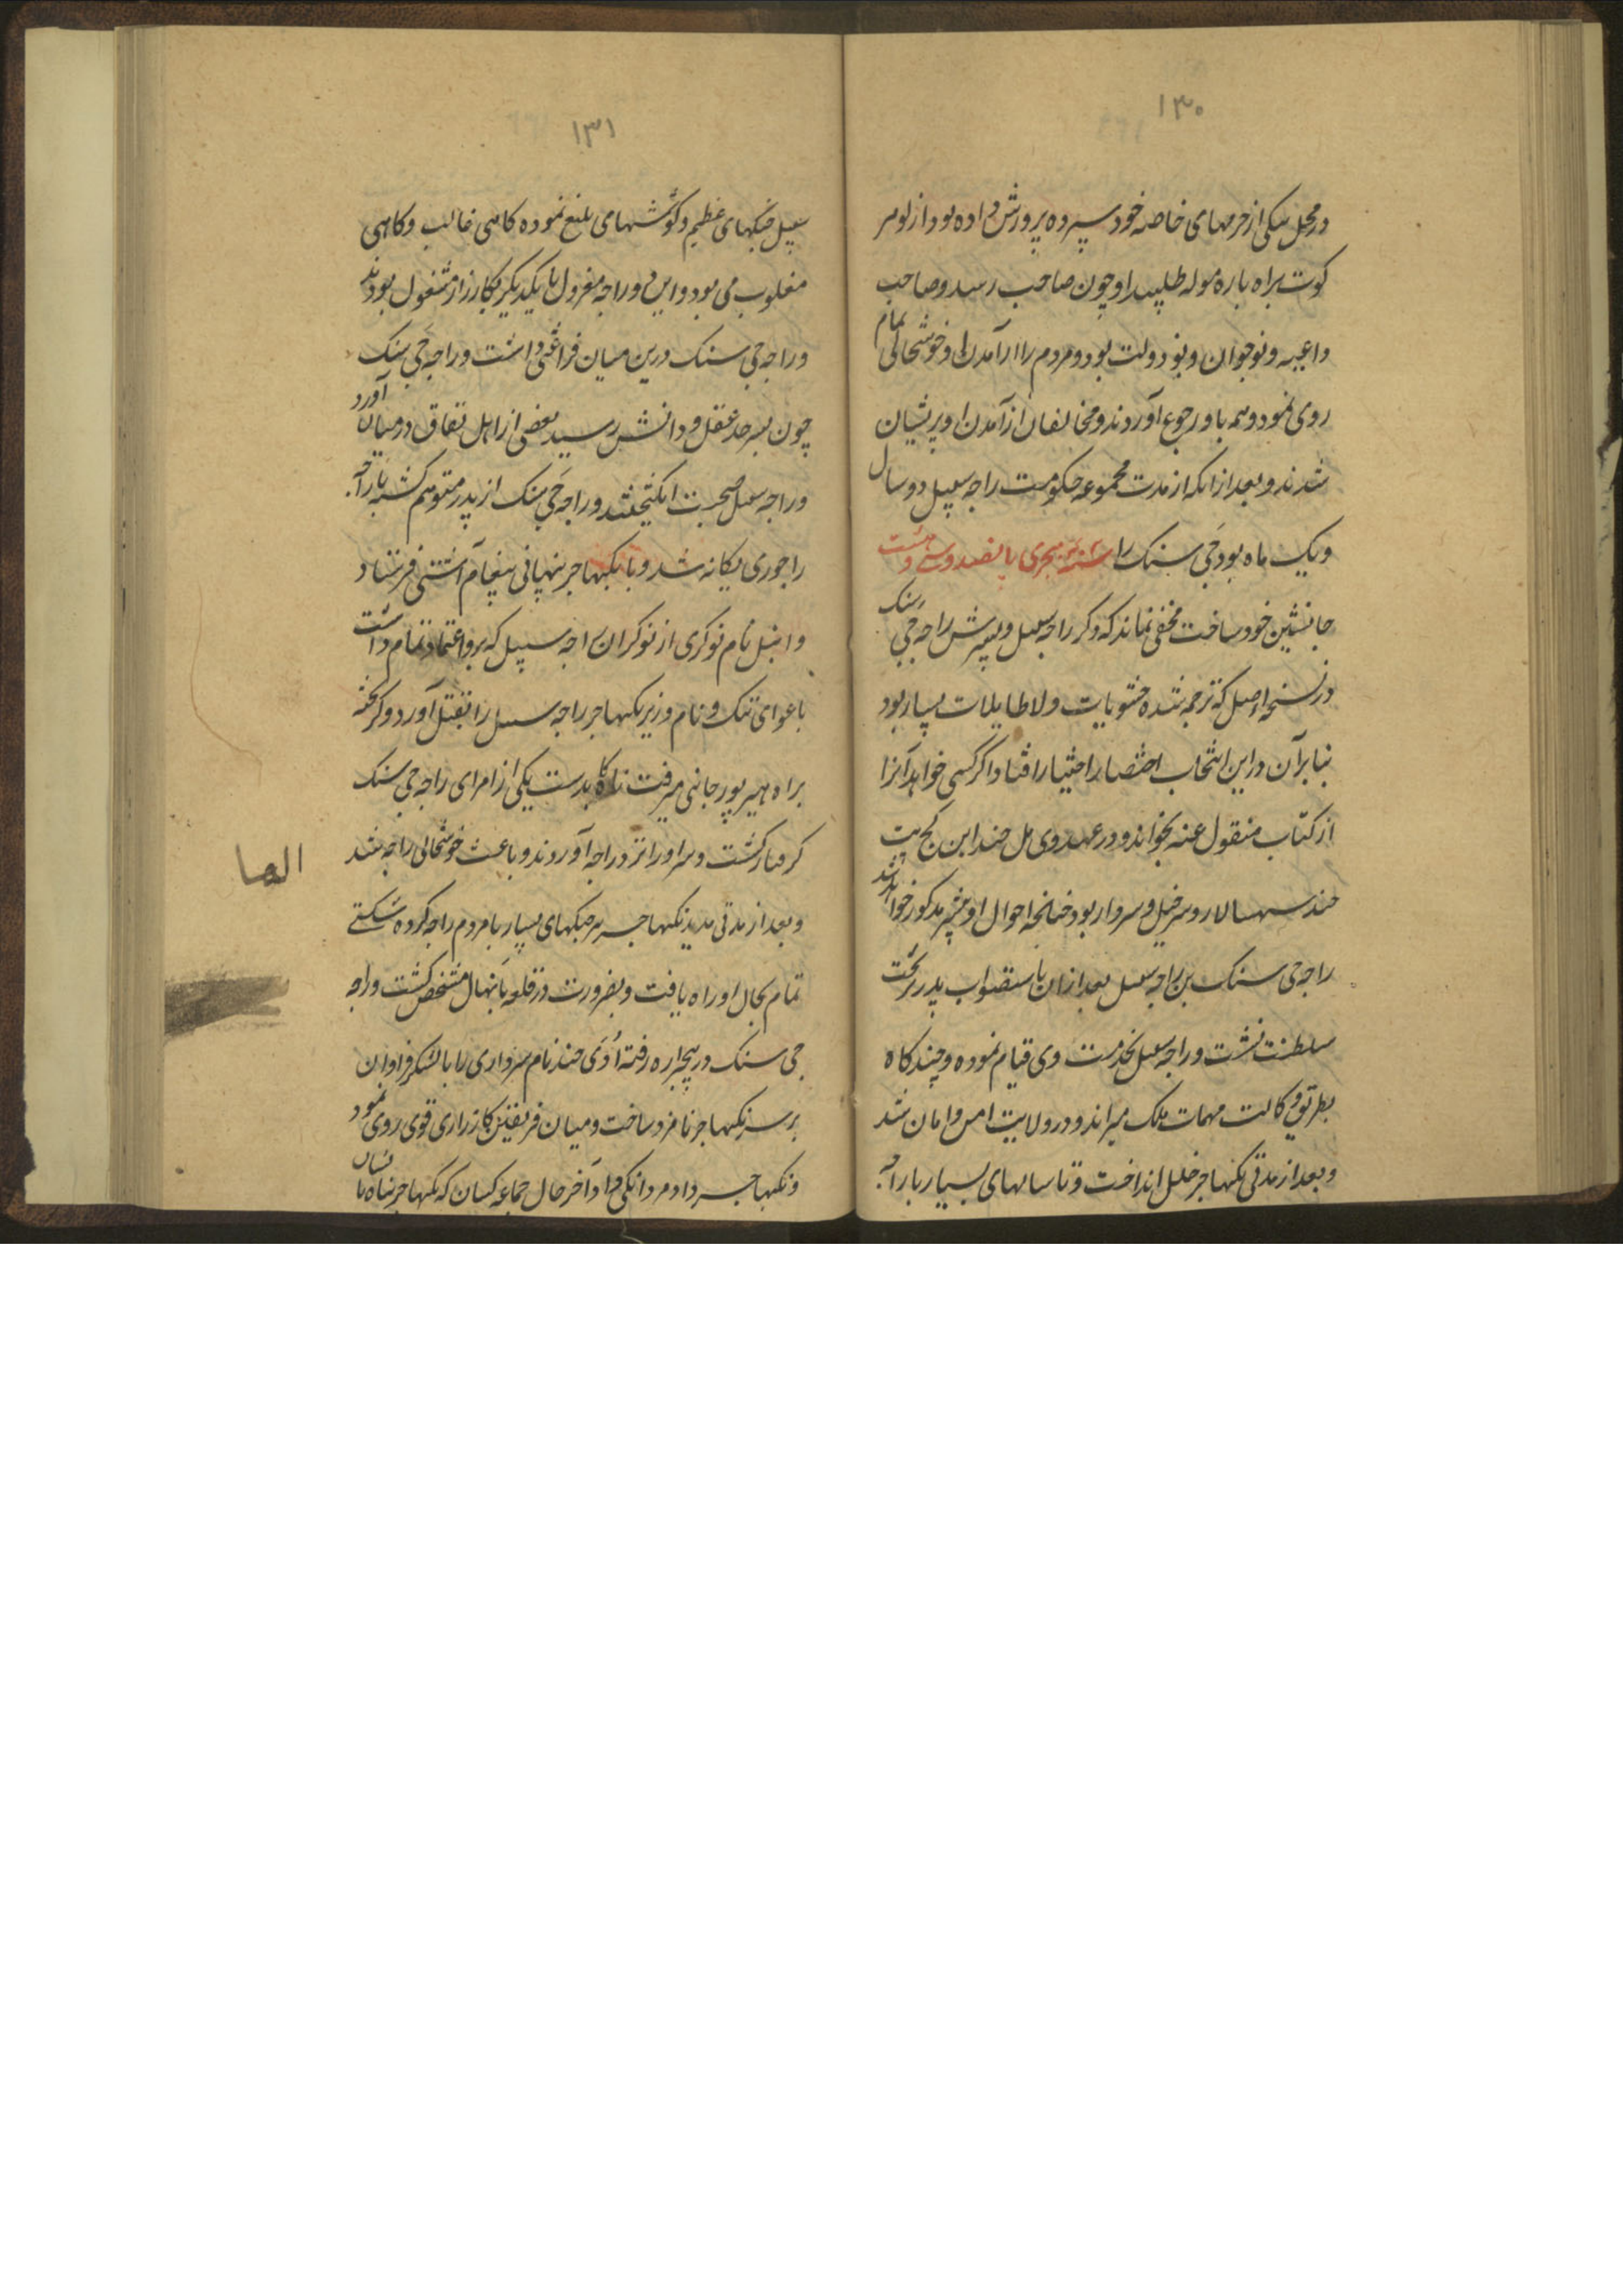 ۱۳۰
در محل یکی از حرمهای خاصه خود سپرده پرورش داده بود از لوهر
کوت براه باره موله طلبید او چون صاحب رسد و صاحب
داعیه و نوجوان و نو دولت بود و مردم را از آمدن او خوشحالی تمام
روی نمود و همه باو رجوع آوردند و مخالفان از آمدن او پریشان
شدند و بعد از انکه از مدت مجموعه حکومت راجه سسل دو سال
و یک ماه بود جی سنک را سنه هجری پانصد و سی و هشت
جانشین خود ساخت مخفی نماند که ذکر راجه سسل و پسرش راجه جی سنک
در نسخه اصل که ترجمه شده حشویات و لاطایلات بسیار بود
بنا بر آن در این انتخاب اختصار اختیار افتاد اگر کسی خواهد آنرا
از کتاب منقول عنه بخواند و در عهد وی مل چند ابن کج پت
چند سپهسالار و سرخیل و سردار بود چنانچه احوال او بیشتر مذکور خواهد شد
راجه جی سنک بن راجه سسل بعد از ان باستصواب پدر بر تخت
سلطنت نشست و راجه سسل بخدمت وی قیام نموده و چند گاه
بطریق وکالت مهمات ملک میراند و در ولایت امن و امان شد
و بعد از مدتی نکهاجر خلل انداخت و تا سالهای بسیار با راجه
۱۳۱
سسپل جنگهای عظیم و کوششهای بلیغ نموده کاهی غالب و کاهی
مغلوب می بود و این دو راجه معزول با یکدیگر بکارزار مشغول بودند
و راجه جی سنک درین میان فراغتی داشت و راجه جی سنک
چون بسرحد عقل و دانش رسید بعضی از اهل نفاق در میان آورد
و راجه سسل صحبت انکیختند و راجه جی سنک از پدر متوهم کشته با راجه
راجوری یکانه شد و با نکهاجر پنهانی پیغام آشتی فرستاد
و اتپل نام نوکری از نوکران راجه سسپل که برو اعتماد تمام داشت
باغوای تنک و نام وزیر نکهاجر راجه سسل را بقتل آورد و گریخته
براه هیره پور جانی میرفت ناکاه بدست یکی از امرای راجه جی سنک
گرفتار گشت و سر او را نزد راجه آوردند و باعث خوشحالی راجه شد
و بعد از مدتی مدید نکهاجر جنگهای بسیار با مردم راجه کرده شکستی
تمام بحال او راه یافت و بضرورت در قلعه بانهال متحصن گشت و راجه
جی سنک در بیجاره رفته اودی چند نام سرداری را با لشکر فراوان
بر سر نکهاجر نامزد ساخت و میان فریقین کارزاری قوی روی نمود
و نکهاجر داد مردانگی داد آخر حال جماعه کسان که نکهاجر پناه با ایشان
الها